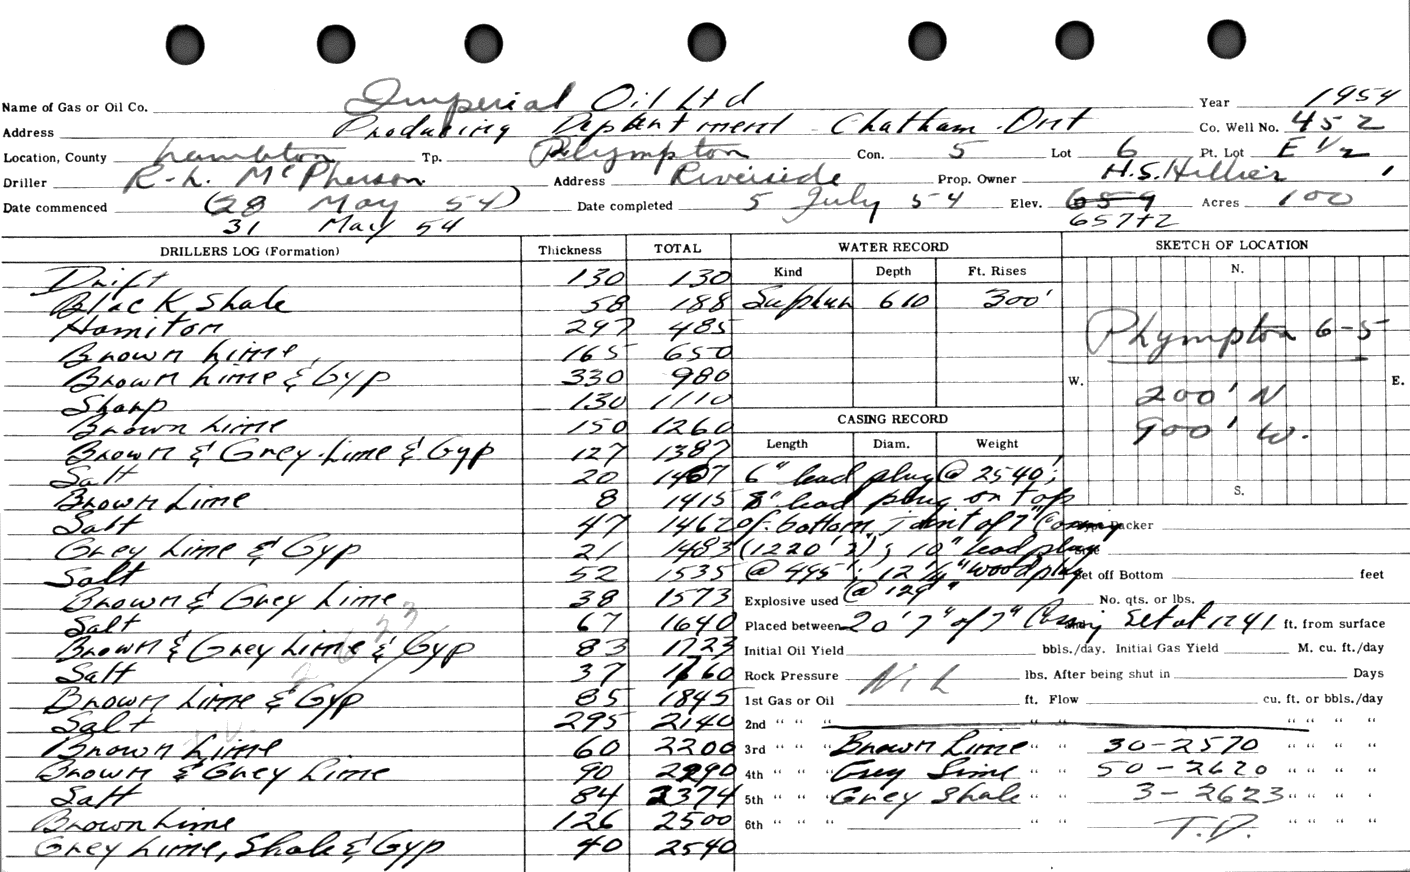 Name of Gas or Oil Co. Imperial Oil Ltd Year 1954
Address Producing Department Chatham Ont Co. Well No. 452
Location, County Lambton Tp. Plympton Con. 5 Lot 6 Pt. Lot E 1/2
Driller R. L. McPherson Address Riverside Prop. Owner H.S. Hillier
Date commenced (28 May 54) Date completed 5 July 54 Elev. 659 Acres 100
31 May 54 657+2
DRILLERS LOG (Formation) Thickness TOTAL WATER RECORD SKETCH OF LOCATION
Kind Depth Ft. Rises N.
Drift 130 130
Black Shale 58 188 Sulphur 610 300'
Hamilton 297 485 Plympton 6-5
Brown Lime 165 650
Brown Lime & Gyp 330 980 W. E.
Sharp 130 1110 200' N
Brown Lime 150 1260 CASING RECORD 900' W.
Brown & Grey Lime & Gyp 127 1387 Length Diam. Weight
Salt 20 1407 6" lead plug @ 2540';
Brown Lime 8 1415 8" lead plug on top S.
Salt 47 1462 of bottom joint of 7" Casing Packer
Grey Lime & Gyp 21 1483 (1220' 2"); 10" lead plug
Salt 52 1535 @ 495'; 12 1/4" wood plug Set off Bottom feet
Brown & Grey Lime 38 1573 Explosive used @ 129' No. qts. or lbs.
Salt 67 1640 Placed between 20' 7" of 7" Casing Set at 1241 ft. from surface
Brown & Grey Lime & Gyp 83 1723 Initial Oil Yield bbls./day. Initial Gas Yield M. cu. ft./day
Salt 37 1760 Rock Pressure Nil lbs. After being shut in Days
Brown Lime & Gyp 85 1845 1st Gas or Oil ft. Flow cu. ft. or bbls./day
Salt 295 2140 2nd " " " " " " " " "
Brown Lime 60 2200 3rd " " " Brown Lime " " 30-2570 " " " "
Brown & Grey Lime 90 2290 4th " " " Grey Lime " " 50-2620 " " " "
Salt 84 2374 5th " " " Grey Shale " " 3-2623 " " " "
Brown Lime 126 2500 6th " " " " " " " " "
Grey Lime, Shale & Gyp 40 2540 T.D.